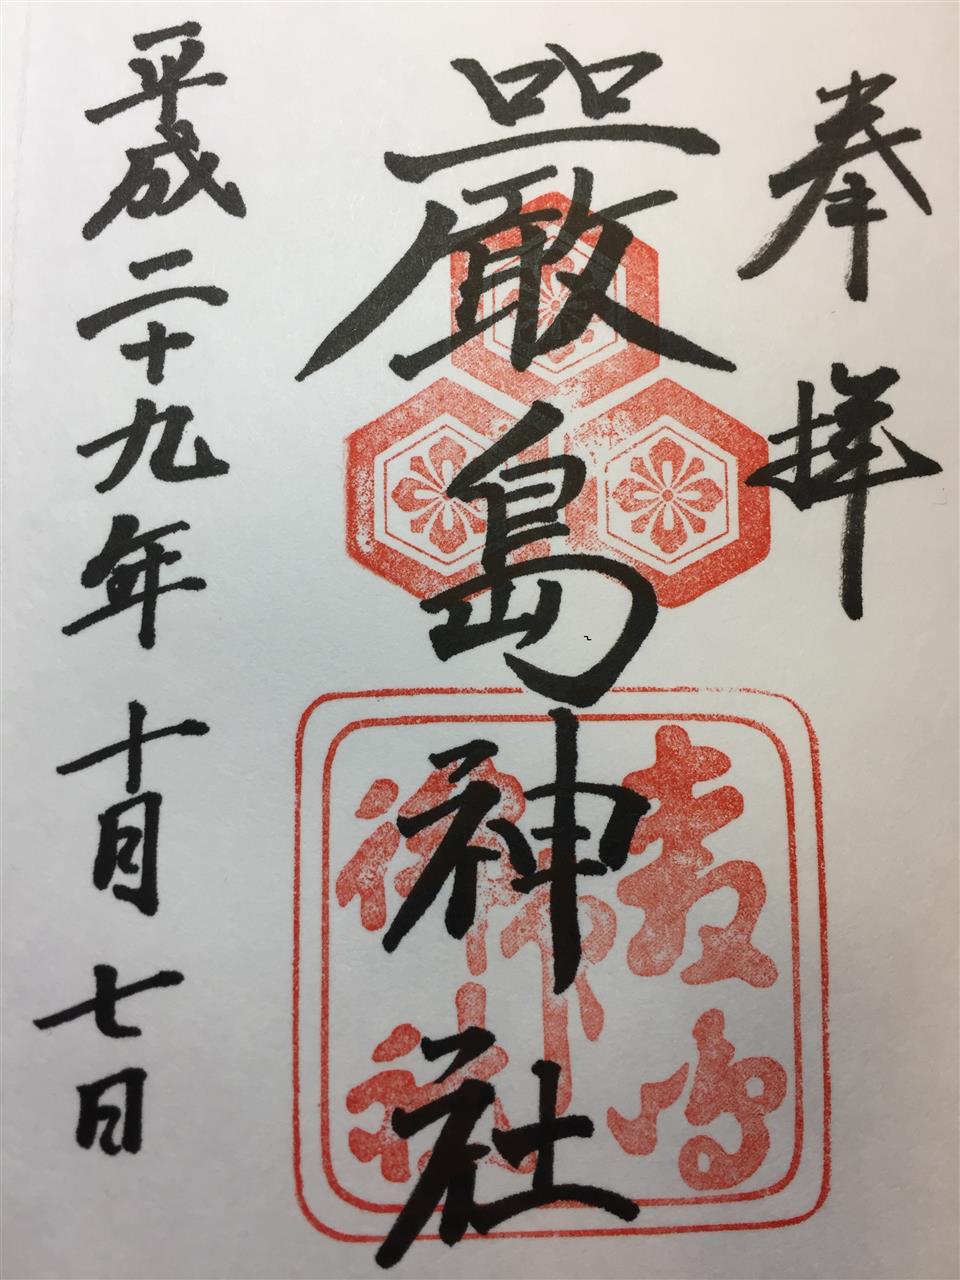 奉拝
嚴島神社
平成二十九年十月七日
嚴島
神社